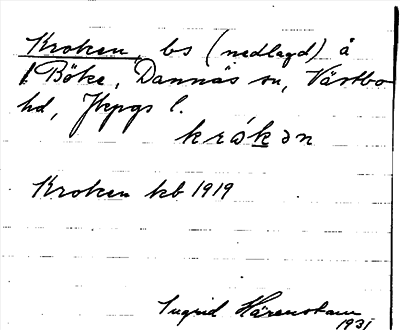 Kroken, bs (nedlagd) å
Böke, Dannäs sn, Västbo
hd, Jkpgs l.
krókən
Kroken kb 1919
Ingrid Härenstam
1931